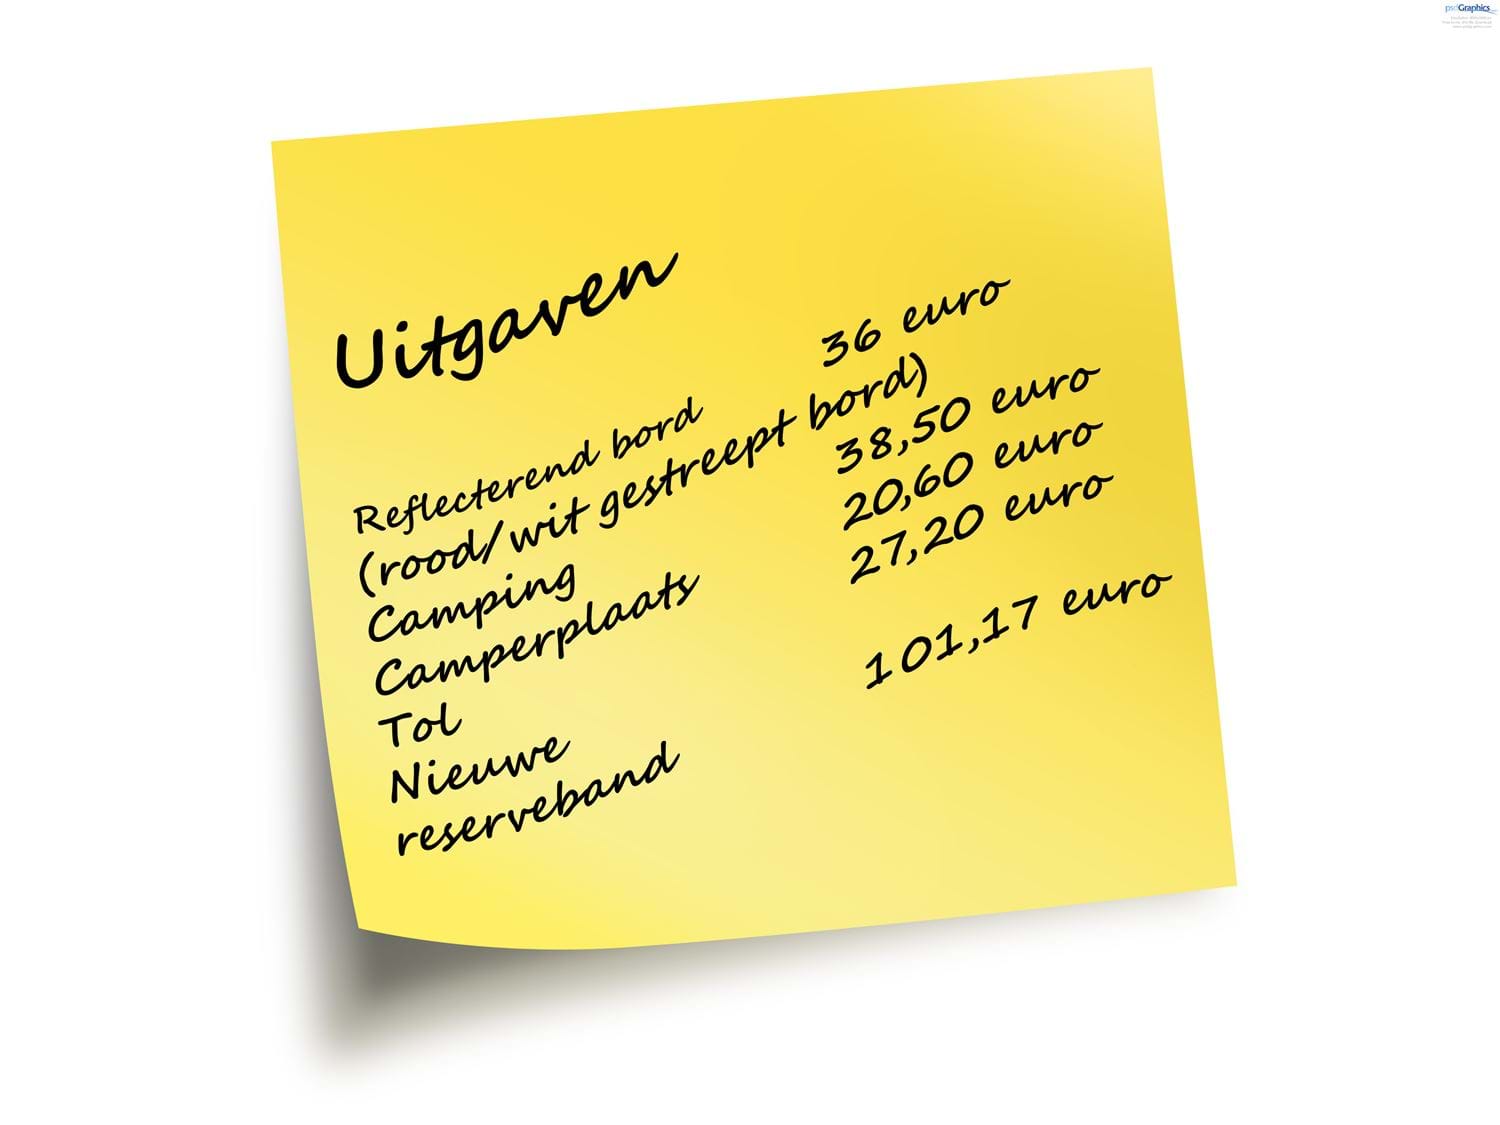 psdGraphics
Uitgaven
Reflecterend bord 36 euro
(rood/wit gestreept bord)
Camping 38,50 euro
Camperplaats 20,60 euro
Tol 27,20 euro
Nieuwe
reserveband 101,17 euro